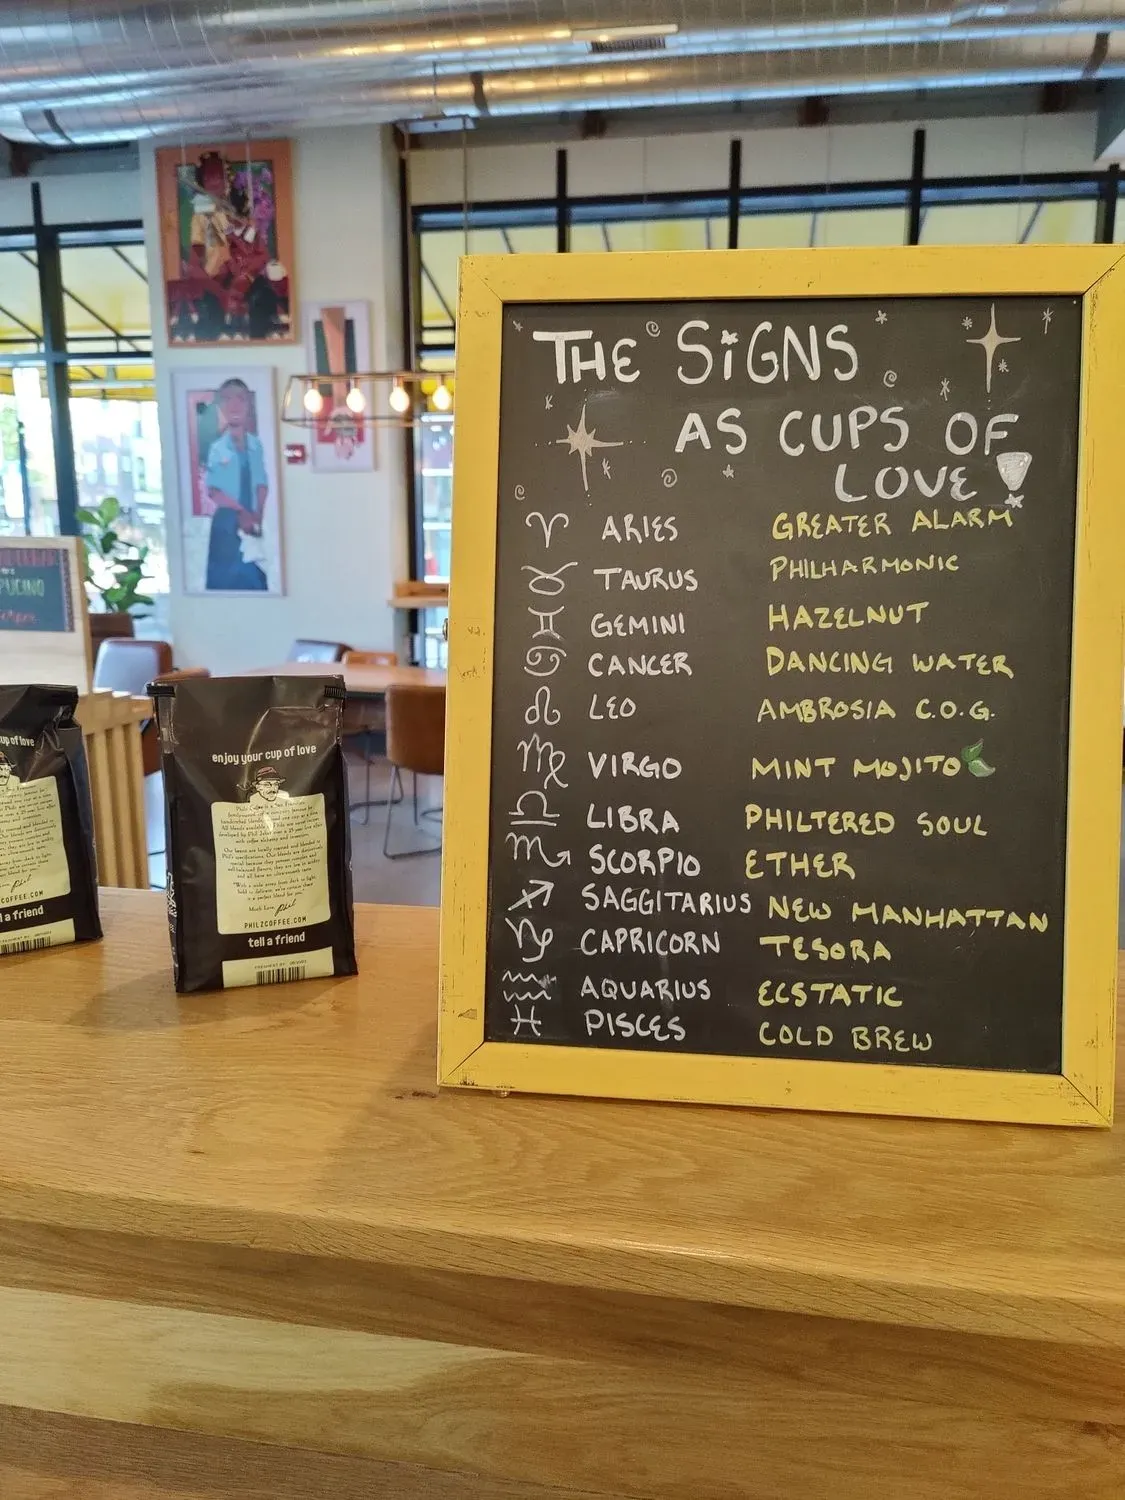 THE SIGNS
AS CUPS OF
LOVE
♈ ARIES GREATER ALARM
♉ TAURUS PHILHARMONIC
♊ GEMINI HAZELNUT
♋ CANCER DANCING WATER
♌ LEO AMBROSIA C.O.G.
♍ VIRGO MINT MOJITO
♎ LIBRA PHILTERED SOUL
♏ SCORPIO ETHER
♐ SAGGITARIUS NEW MANHATTAN
♑ CAPRICORN TESORA
♒ AQUARIUS ECSTATIC
♓ PISCES COLD BREW
enjoy your cup of love
Much Love, Phil
PHILZCOFFEE.COM
tell a friend
up of love
COFFEE.COM
a friend